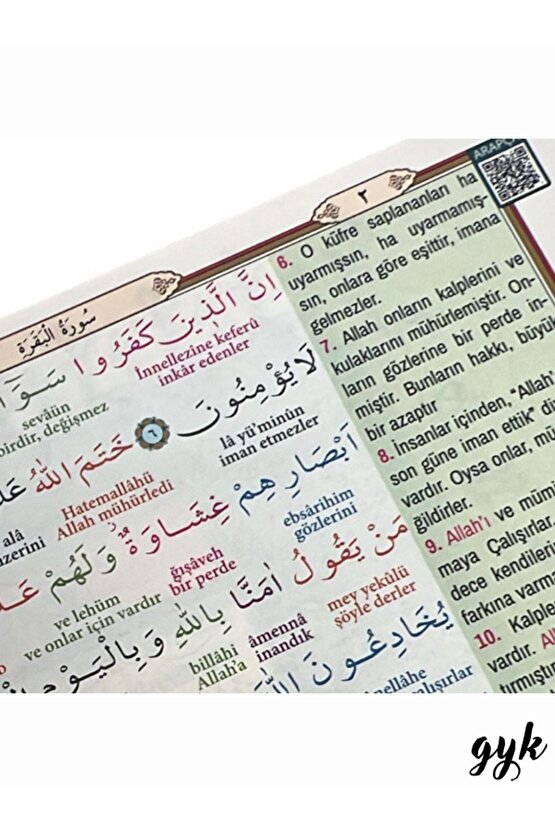 ARAPÇ
٢
سُورَةُ الْبَقَرَةِ
اِنَّ الَّذ۪ينَ كَفَرُوا سَوَٓا
İnnellezine keferû
inkâr edenler
sevâün
birdir, değişmez
لَا يُؤْمِنُونَ ٦ خَتَمَ اللّٰهُ عَلٰ
lâ yü'minûn
iman etmezler
Hatemallâhü
Allah mühürledi
alâ
üzerini
اَبْصَارِهِمْ غِشَاوَةٌ وَلَهُمْ عَذَ
ebsârihim
gözlerini
ğışâveh
bir perde
ve lehüm
ve onlar için vardır
مَنْ يَقُولُ اٰمَنَّا بِاللّٰهِ وَبِالْيَوْمِ
mey yekûlü
şöyle derler
âmennâ
inandık
billâhi
Allah'a
يُخَادِعُونَ اللّٰهَ
nellahe
çalışırlar
6. O küfre saplananları ha
uyarmışsın, ha uyarmamış-
sın, onlara göre eşittir, imana
gelmezler.
7. Allah onların kalplerini ve
kulaklarını mühürlemiştir. On-
ların gözlerine bir perde in-
miştir. Bunların hakkı, büyü
bir azaptır
8. İnsanlar içinden, "Allah'
son güne iman ettik" di
vardır. Oysa onlar, mü
ğildirler.
9. Allah'ı ve müm
maya Çalışırlar
dece kendileri
farkına varm
10. Kalple
vardır. Al
tırmıştır
gyk